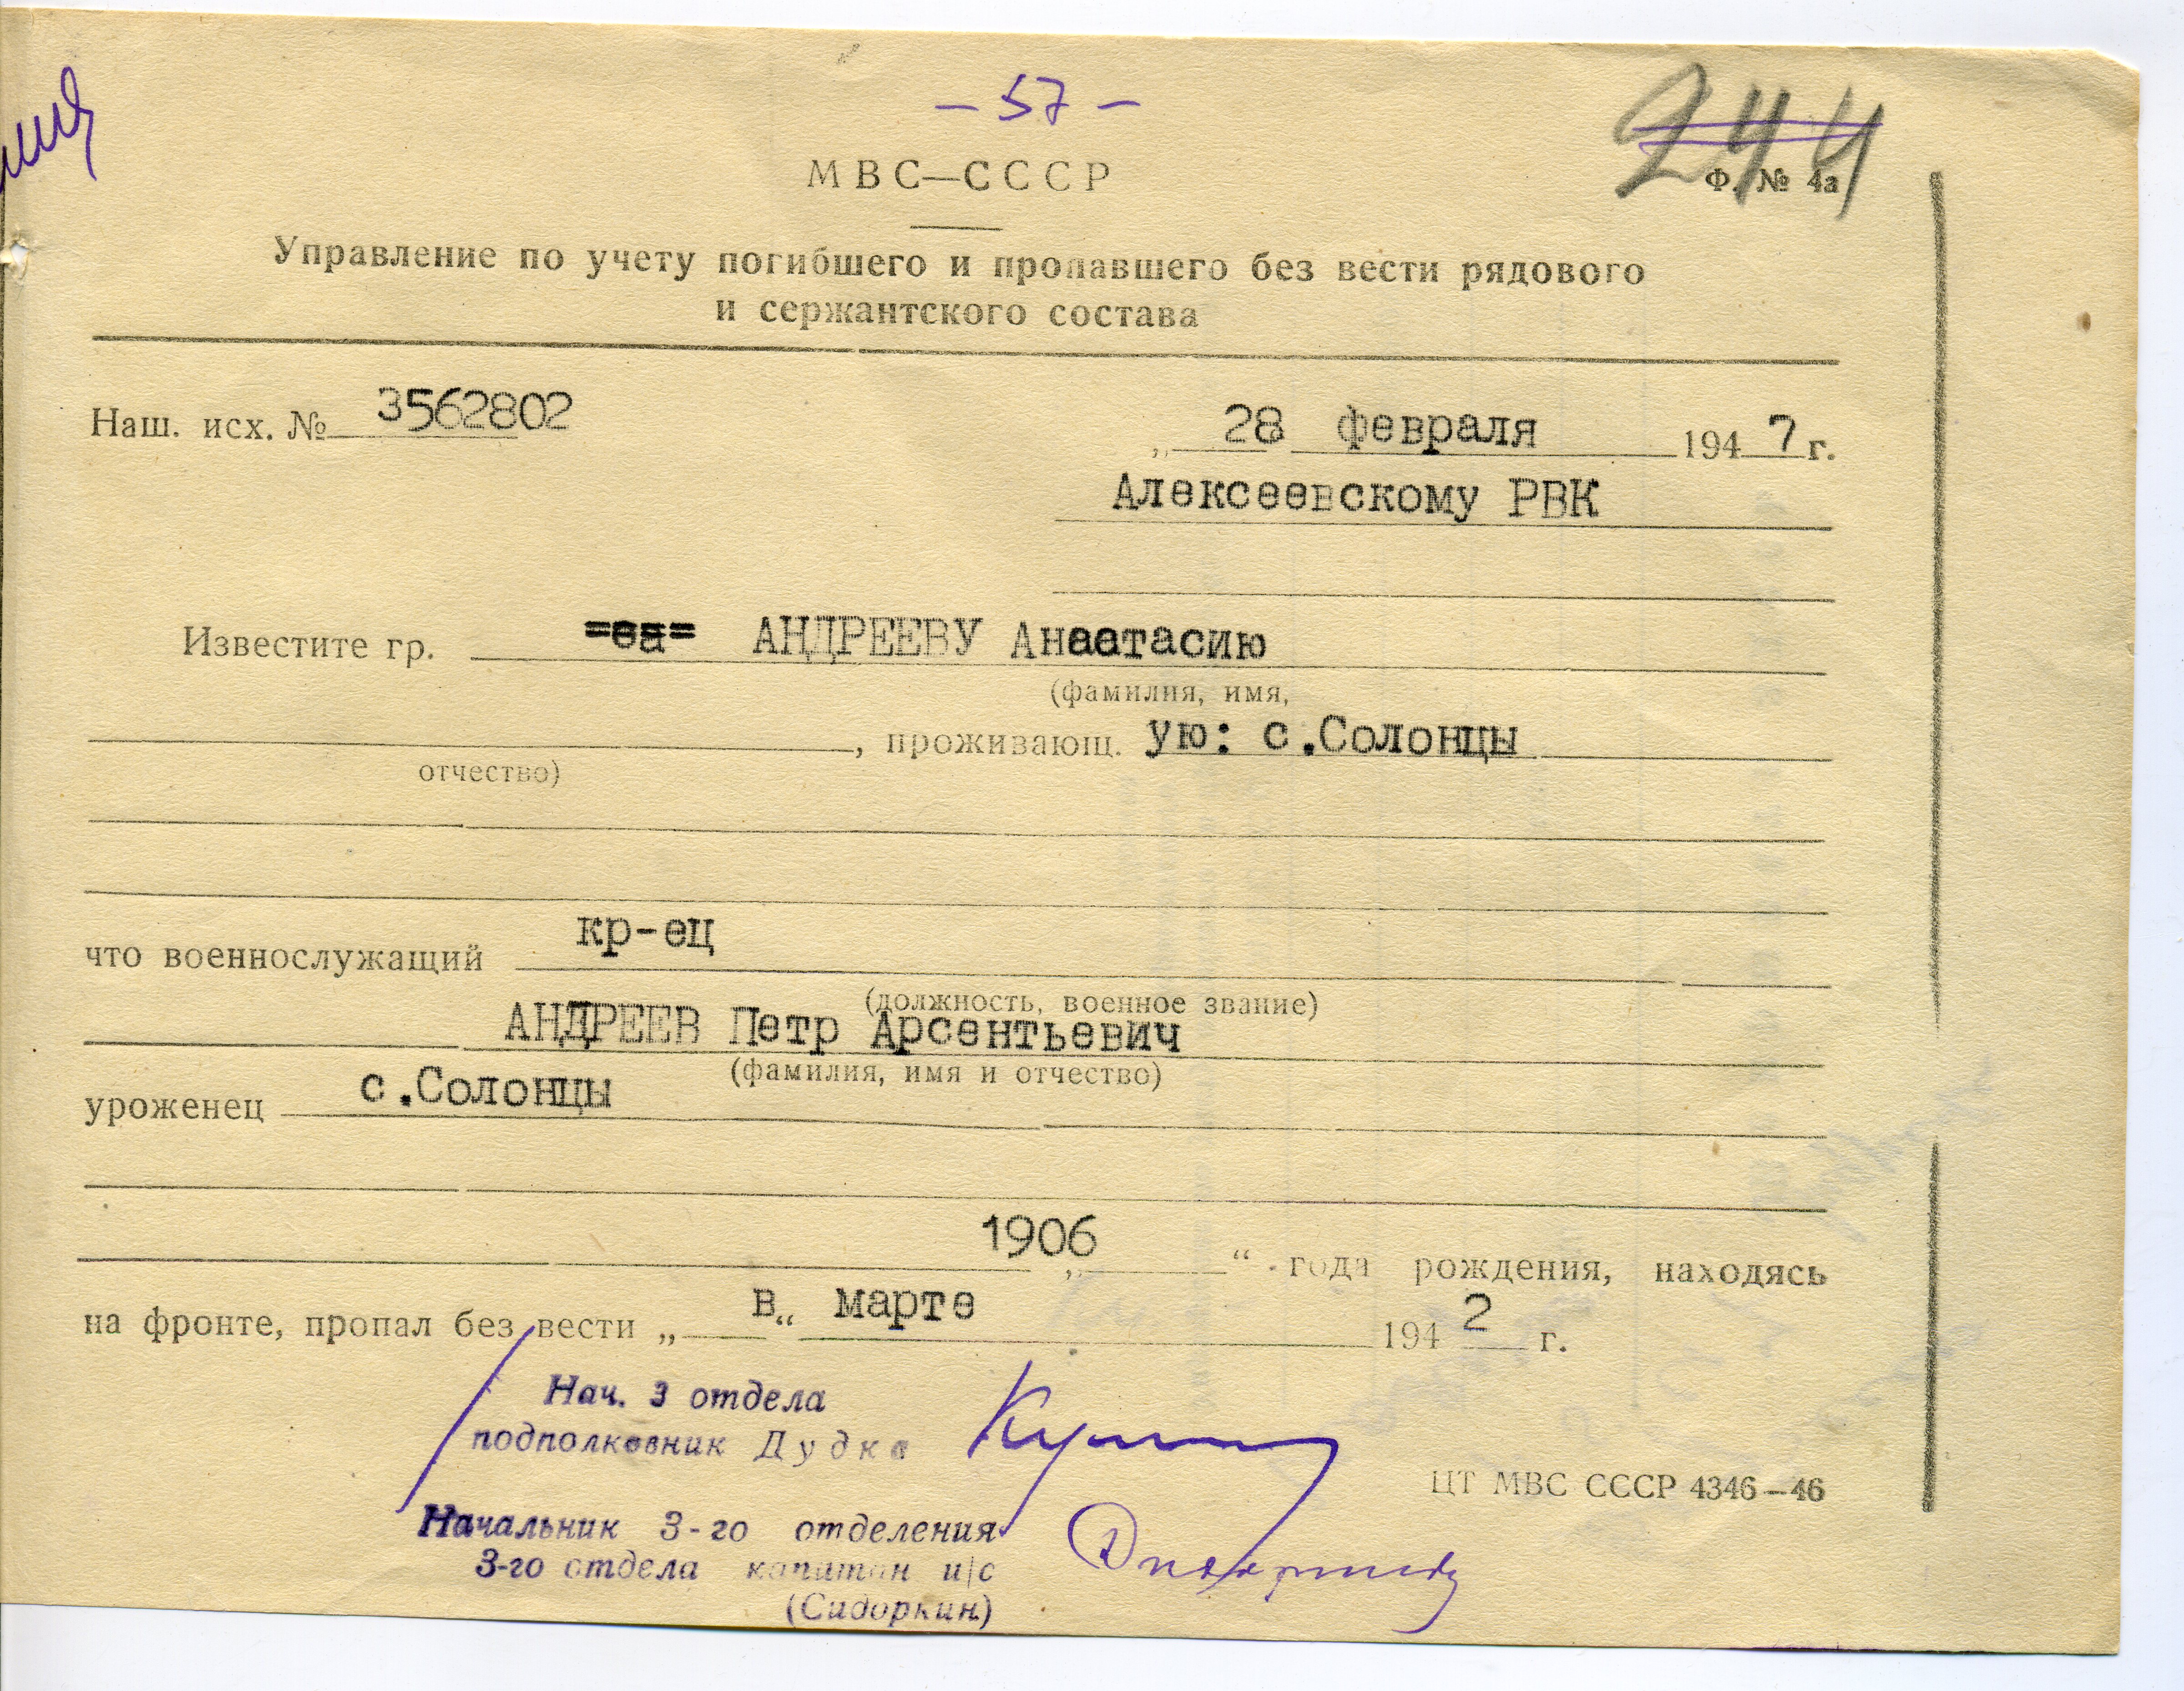 – 57 –
244
МВС—СССР
Ф. № 4а
Управление по учету погибшего и пропавшего без вести рядового
и сержантского состава
Наш. исх. № 3562802
„ 28 февраля 1947 г.
Алексеевскому РВК
Известите гр. =еа= АНДРЕЕВУ Анаетасию
(фамилия, имя,
, проживающ. ую: с.Солонцы
отчество)
что военнослужащий кр-ец
(должность, военное звание)
АНДРЕЕВ Петр Арсентьевич
(фамилия, имя и отчество)
уроженец с.Солонцы
1906 „ “ года рождения, находясь
на фронте, пропал без вести „ в “ марте 1942 г.
Нач. 3 отдела
подполковник Дудка
ЦТ МВС СССР 4346—46
Начальник 3-го отделения
3-го отдела капитан и/с
(Сидоркин)